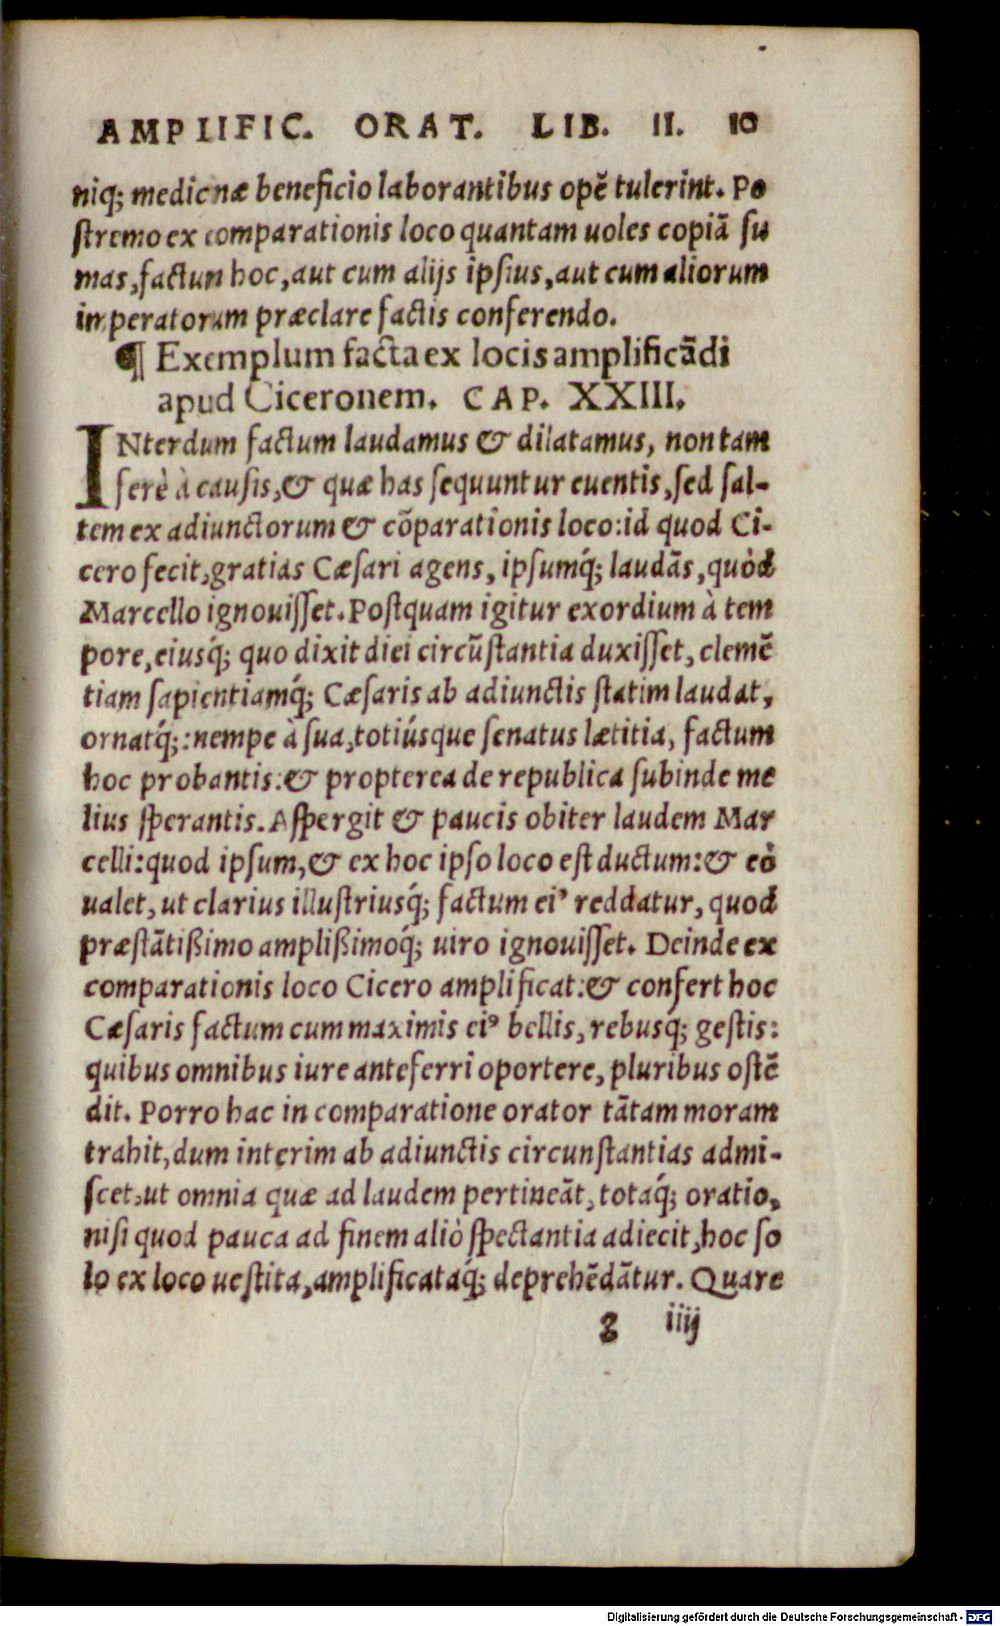 AMPLIFIC. ORAT. LIB. II. 10
niq; medicinæ beneficio laborantibus opẽ tulerint. Po
stremo ex comparationis loco quantam uoles copiã su
mas, factun hoc, aut cum alijs ipsius, aut cum aliorum
imperatorum præclare factis conferendo.
¶ Exemplum facta ex locis amplificãdi
apud Ciceronem. CAP. XXIII.
INterdum factum laudamus & dilatamus, non tam
ferè à causis, & quæ has sequuntur euentis, sed sal-
tem ex adiunctorum & cõparationis loco: id quod Ci-
cero fecit, gratias Cæsari agens, ipsumq́; laudãs, quòd
Marcello ignouisset. Postquam igitur exordium à tem
pore, eiusq́; quo dixit diei circũstantia duxisset, clemẽ
tiam sapientiamq́; Cæsaris ab adiunctis statim laudat,
ornatq́;: nempe à sua, totiúsque senatus lætitia, factum
hoc probantis: & propterea de republica subinde me
lius sperantis. Aspergit & paucis obiter laudem Mar
celli: quod ipsum, & ex hoc ipso loco est ductum: & eò
ualet, ut clarius illustriusq́; factum eiꝰ reddatur, quod
præstãtißimo amplißimoq́; uiro ignouisset. Deinde ex
comparationis loco Cicero amplificat: & confert hoc
Cæsaris factum cum maximis eiꝰ bellis, rebusq́; gestis:
quibus omnibus iure anteferri oportere, pluribus ostẽ
dit. Porro hac in comparatione orator tãtam moram
trahit, dum interim ab adiunctis circunstantias admi-
scet, ut omnia quæ ad laudem pertineãt, totaq́; oratio,
nisi quod pauca ad finem aliò spectantia adiecit, hoc so
lo ex loco uestita, amplificataq́; deprehẽdãtur. Quare
g iiij
Digitalisierung gefördert durch die Deutsche Forschungsgemeinschaft - DFG